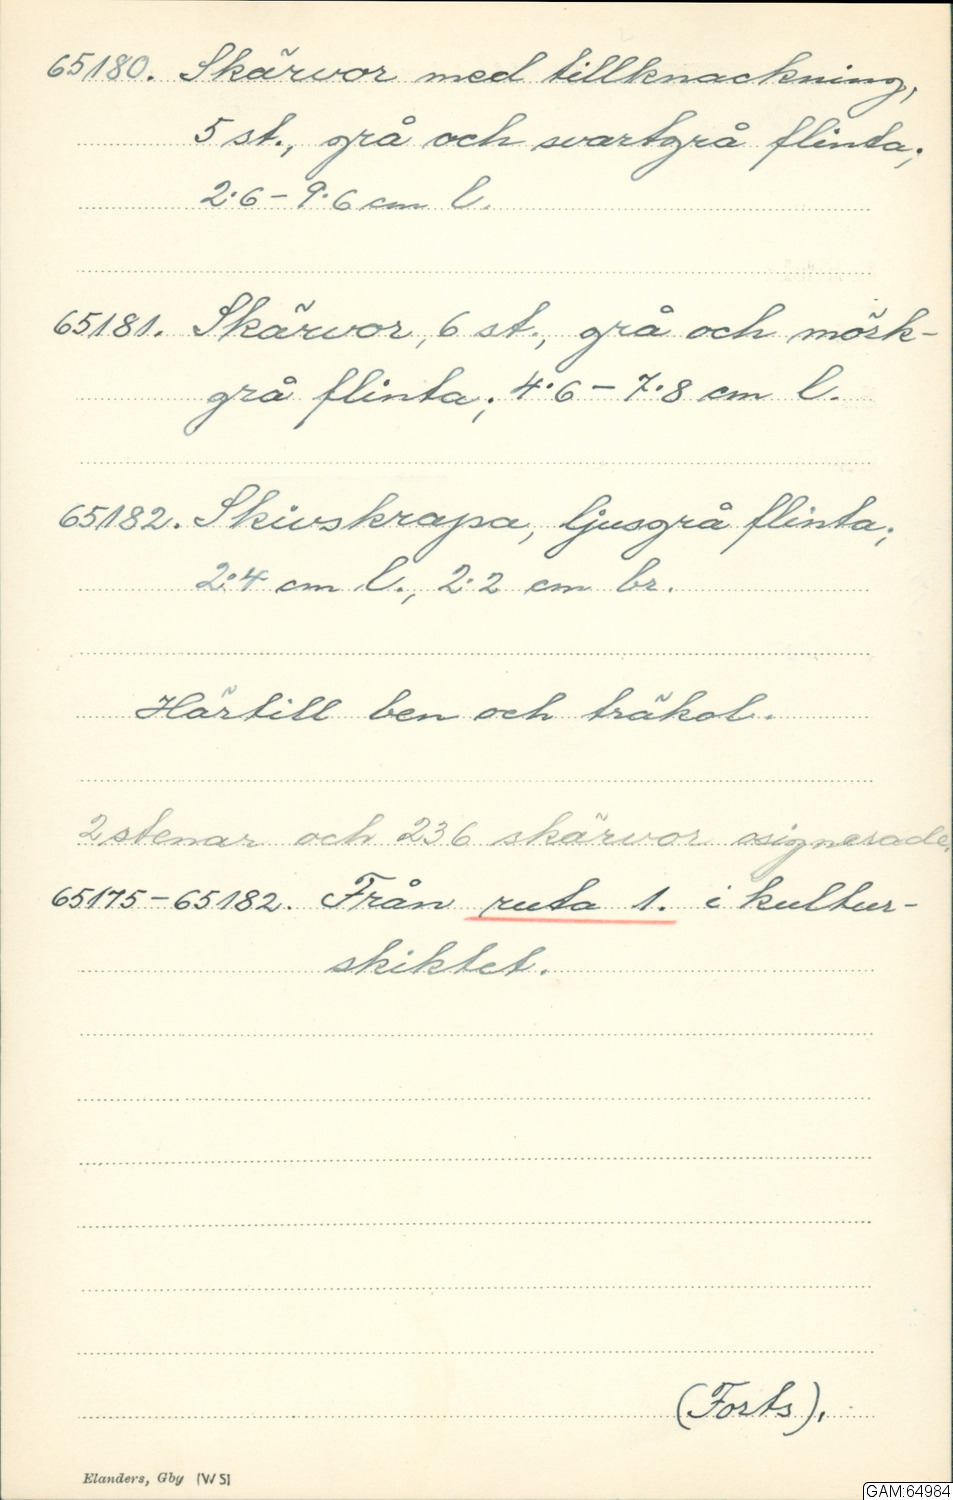 65180. Skärvor med tillknackning,
5 st., grå och svartgrå flinta;
2·6 – 9·6 cm l.
65181. Skärvor, 6 st., grå och mörk-
grå flinta; 4·6 – 7·8 cm l.
65182. Skivskrapa, ljusgrå flinta;
2·4 cm l., 2·2 cm br.
Härtill ben och träkol.
2 stenar och 236 skärvor osignerade.
65175–65182. Från ruta 1. i kultur-
skiktet.
(Forts).
Elanders, Gby (W 5)
GAM:64984